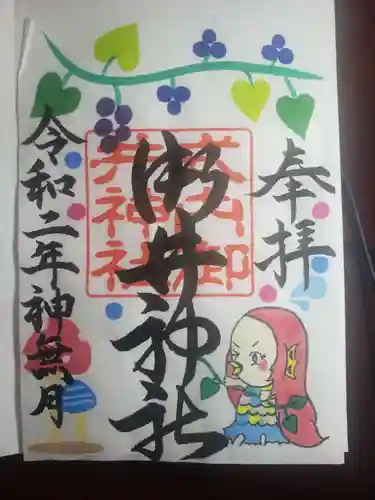 奉拝
御井神社
山御
井神社
令和二年神無月